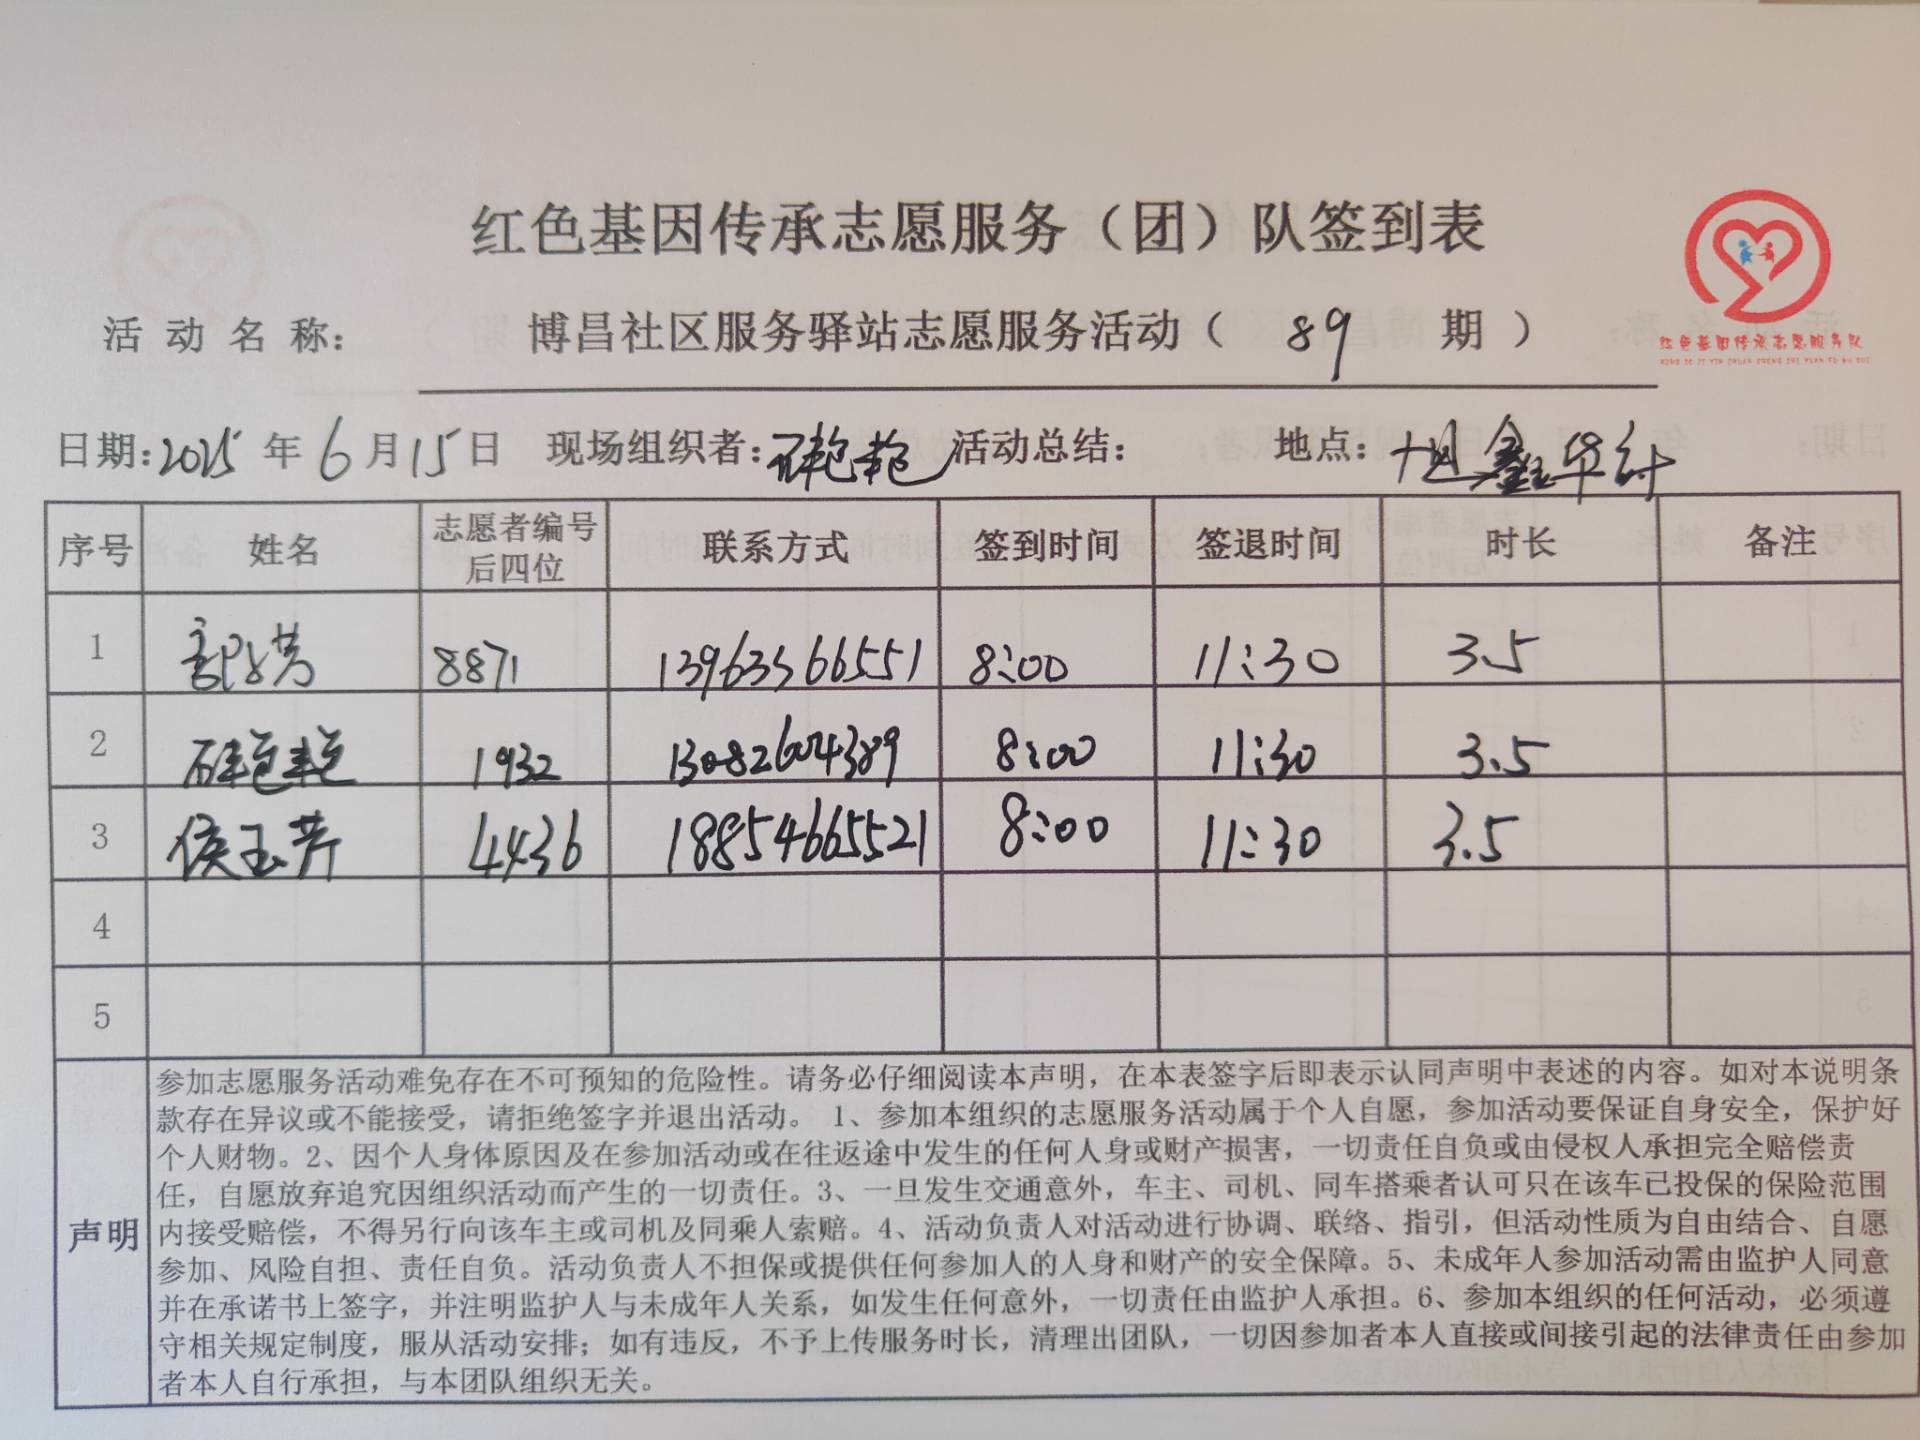 红色基因传承志愿服务（团）队签到表
红色基因传承志愿服务队
HONG SE JI YIN CHUAN CHENG ZHI YUAN FU WU DUI
活动名称： 博昌社区服务驿站志愿服务活动（ 89 期 ）
日期：2025 年 6 月 15 日 现场组织者：石艳艳 活动总结： 地点：旭鑫华府
序号 姓名 志愿者编号后四位 联系方式 签到时间 签退时间 时长 备注
1 8871 13963566551 8:00 11:30 3.5
2 石艳艳 1932 13082604389 8:00 11:30 3.5
3 侯玉芹 4436 18854665521 8:00 11:30 3.5
4
5
声明
参加志愿服务活动难免存在不可预知的危险性。请务必仔细阅读本声明，在本表签字后即表示认同声明中表述的内容。如对本说明条
款存在异议或不能接受，请拒绝签字并退出活动。 1、参加本组织的志愿服务活动属于个人自愿，参加活动要保证自身安全，保护好
个人财物。2、因个人身体原因及在参加活动或在往返途中发生的任何人身或财产损害，一切责任自负或由侵权人承担完全赔偿责
任，自愿放弃追究因组织活动而产生的一切责任。3、一旦发生交通意外，车主、司机、同车搭乘者认可只在该车已投保的保险范围
内接受赔偿，不得另行向该车主或司机及同乘人索赔。4、活动负责人对活动进行协调、联络、指引，但活动性质为自由结合、自愿
参加、风险自担、责任自负。活动负责人不担保或提供任何参加人的人身和财产的安全保障。5、未成年人参加活动需由监护人同意
并在承诺书上签字，并注明监护人与未成年人关系，如发生任何意外，一切责任由监护人承担。6、参加本组织的任何活动，必须遵
守相关规定制度，服从活动安排；如有违反，不予上传服务时长，清理出团队，一切因参加者本人直接或间接引起的法律责任由参加
者本人自行承担，与本团队组织无关。